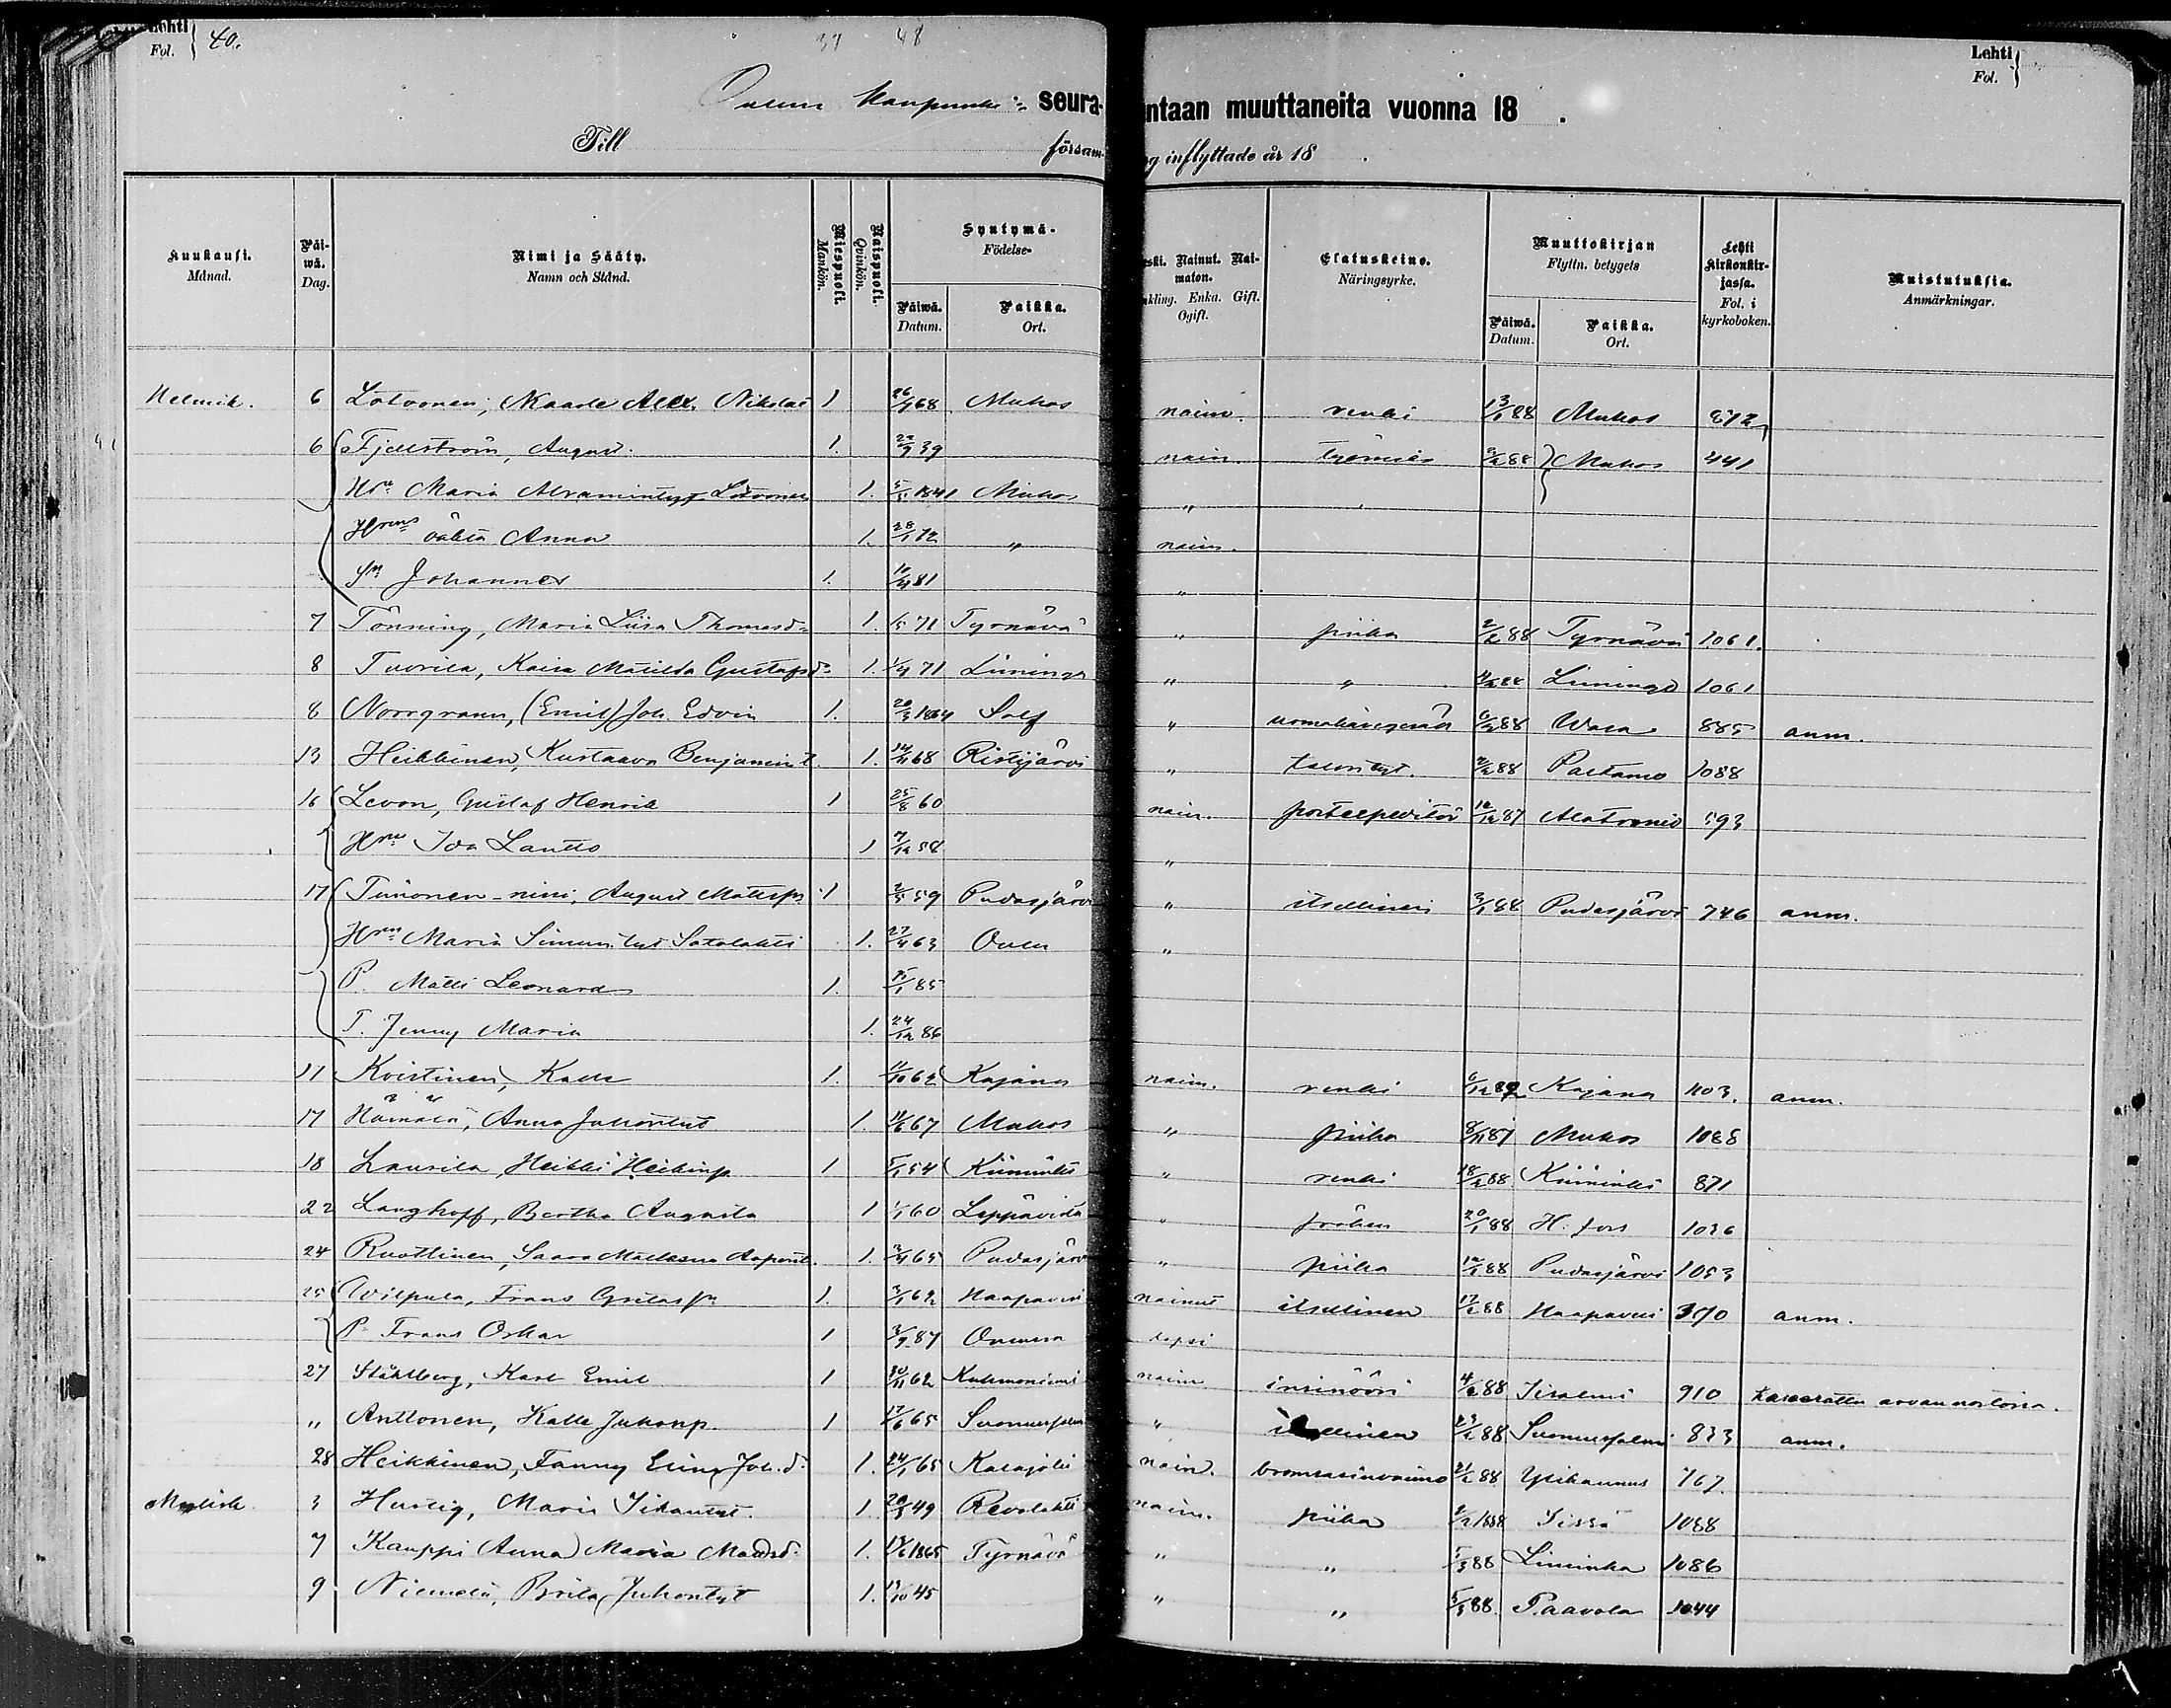 Lehti
Fol. 40.
37 48
Lehti
Fol.
Oulun Kaupunki seurakuntaan muuttaneita vuonna 18 .
Till församling inflyttade år 18 .
Kuukausi. Månad. Päiwä. Dag. Nimi ja Sääty. Namn och Stånd. Miespuoli. Mankön. Naispuoli. Qvinkön. Syntymä- Födelse- Päiwä. Datum. Paikka. Ort. Leski. Nainut. Naimaton. Enkling. Enka. Gift. Ogift. Elatuskeino. Näringsyrke. Muuttokirjan Flyttn. betygets Päiwä. Datum. Paikka. Ort. Lehti kirkonkirjassa. Fol. i kyrkoboken. Muistutuksia. Anmärkningar.
Helmik. 6 Lotvonen, Kaarle Alex. Nikolai 1 26/1 68 Muhos naim. renki 13/1 88 Muhos 872
6 Fjellström, August 1. 39 nain. työmies 88 Muhos 441
Maria Abramintyt Lotvonen 1. 1841 Muhos "
Anna 1. 28/1 72 " naim.
Johannes 1. 10/4 81 "
7 Tönning, Maria Liisa Thomasd. 1. 71 Tyrnävä " piika 2/2 88 Tyrnävä 1061.
8 Tuorila, Kaisa Matilda Gustafsd. 1. 1/4 71 Liminga " " 88 Liminga 1061
8 Norrgrann, (Emil) Joh. Edvin 1. 20/3 1864 Solf " 88 Wasa 885 anm.
13 Heikkinen, Kustaava Benjamint. 1. 14/11 68 Ristijärvi " talont. 88 Paltamo 1088
16 Levon, Gustaf Henrik 1 25/8 60 nain. postexpeditör 10/12 87 Alatornio 593
Ida Lantto 1 7/12 58 "
17 August Mattsp. 1 59 Pudasjärvi " itsellinen 3/1 88 Pudasjärvi 746 anm.
Maria Simuntyt Satolahti 1. 27/4 63 Oulu "
P. Matti Leonard 1. 85
T. Jenny Maria 1. 24/12 86
11 Kalle 1. 11/10 62 Kajana naim. renki Kajana 1103. anm.
17 Hämälä, Anna Juhontyt 1. 11/6 67 Muhos " piika 8/11 87 Muhos 1088
18 Laurila, Heikki Heikinp. 1 5/1 54 Kiiminki " renki 18/2 88 Kiiminki 871
22 Langhoff, Bertha Augusta 1 1/1 60 Leppävirta " fröken 20/1 88 H:fors 1036
24 Ruottinen, Saara Aapont. 1. 65 Pudasjärvi " piika 88 Pudasjärvi 1053
25 Wilpula, Frans Gustafsp. 1. 62 Haapavesi nainut itsellinen 17/2 88 Haapavesi 370 anm.
P. Frans Oskar 1 3/9 87 Oulussa lapsi
27 Ståhlberg, Karl Emil 1 62 Kuhmoniemi naim. insinööri 4/2 88 Iisalmi 910
" Anttonen, Kalle Juhonp. 1 17/6 65 Suomussalmi " itsellinen 88 Suomussalmi 833 anm.
28 Heikkinen, Fanny Elina Joh.d. 1. 24/1 65 Kalajoki nain. 21/2 88 Ylikannus 767
Maalisk. 3 Hurtig, Maria Iikantyt. 1. 20/3 49 Revolahti naim. piika 1888 1088
7 Kauppi (Anna) Maria Madsd. 1. 1865 Tyrnävä " " 5/3 88 Liminka 1086
9 Niemelä, Brita Juhontyt 1. 45 " " 5/3 88 Paavola 1044